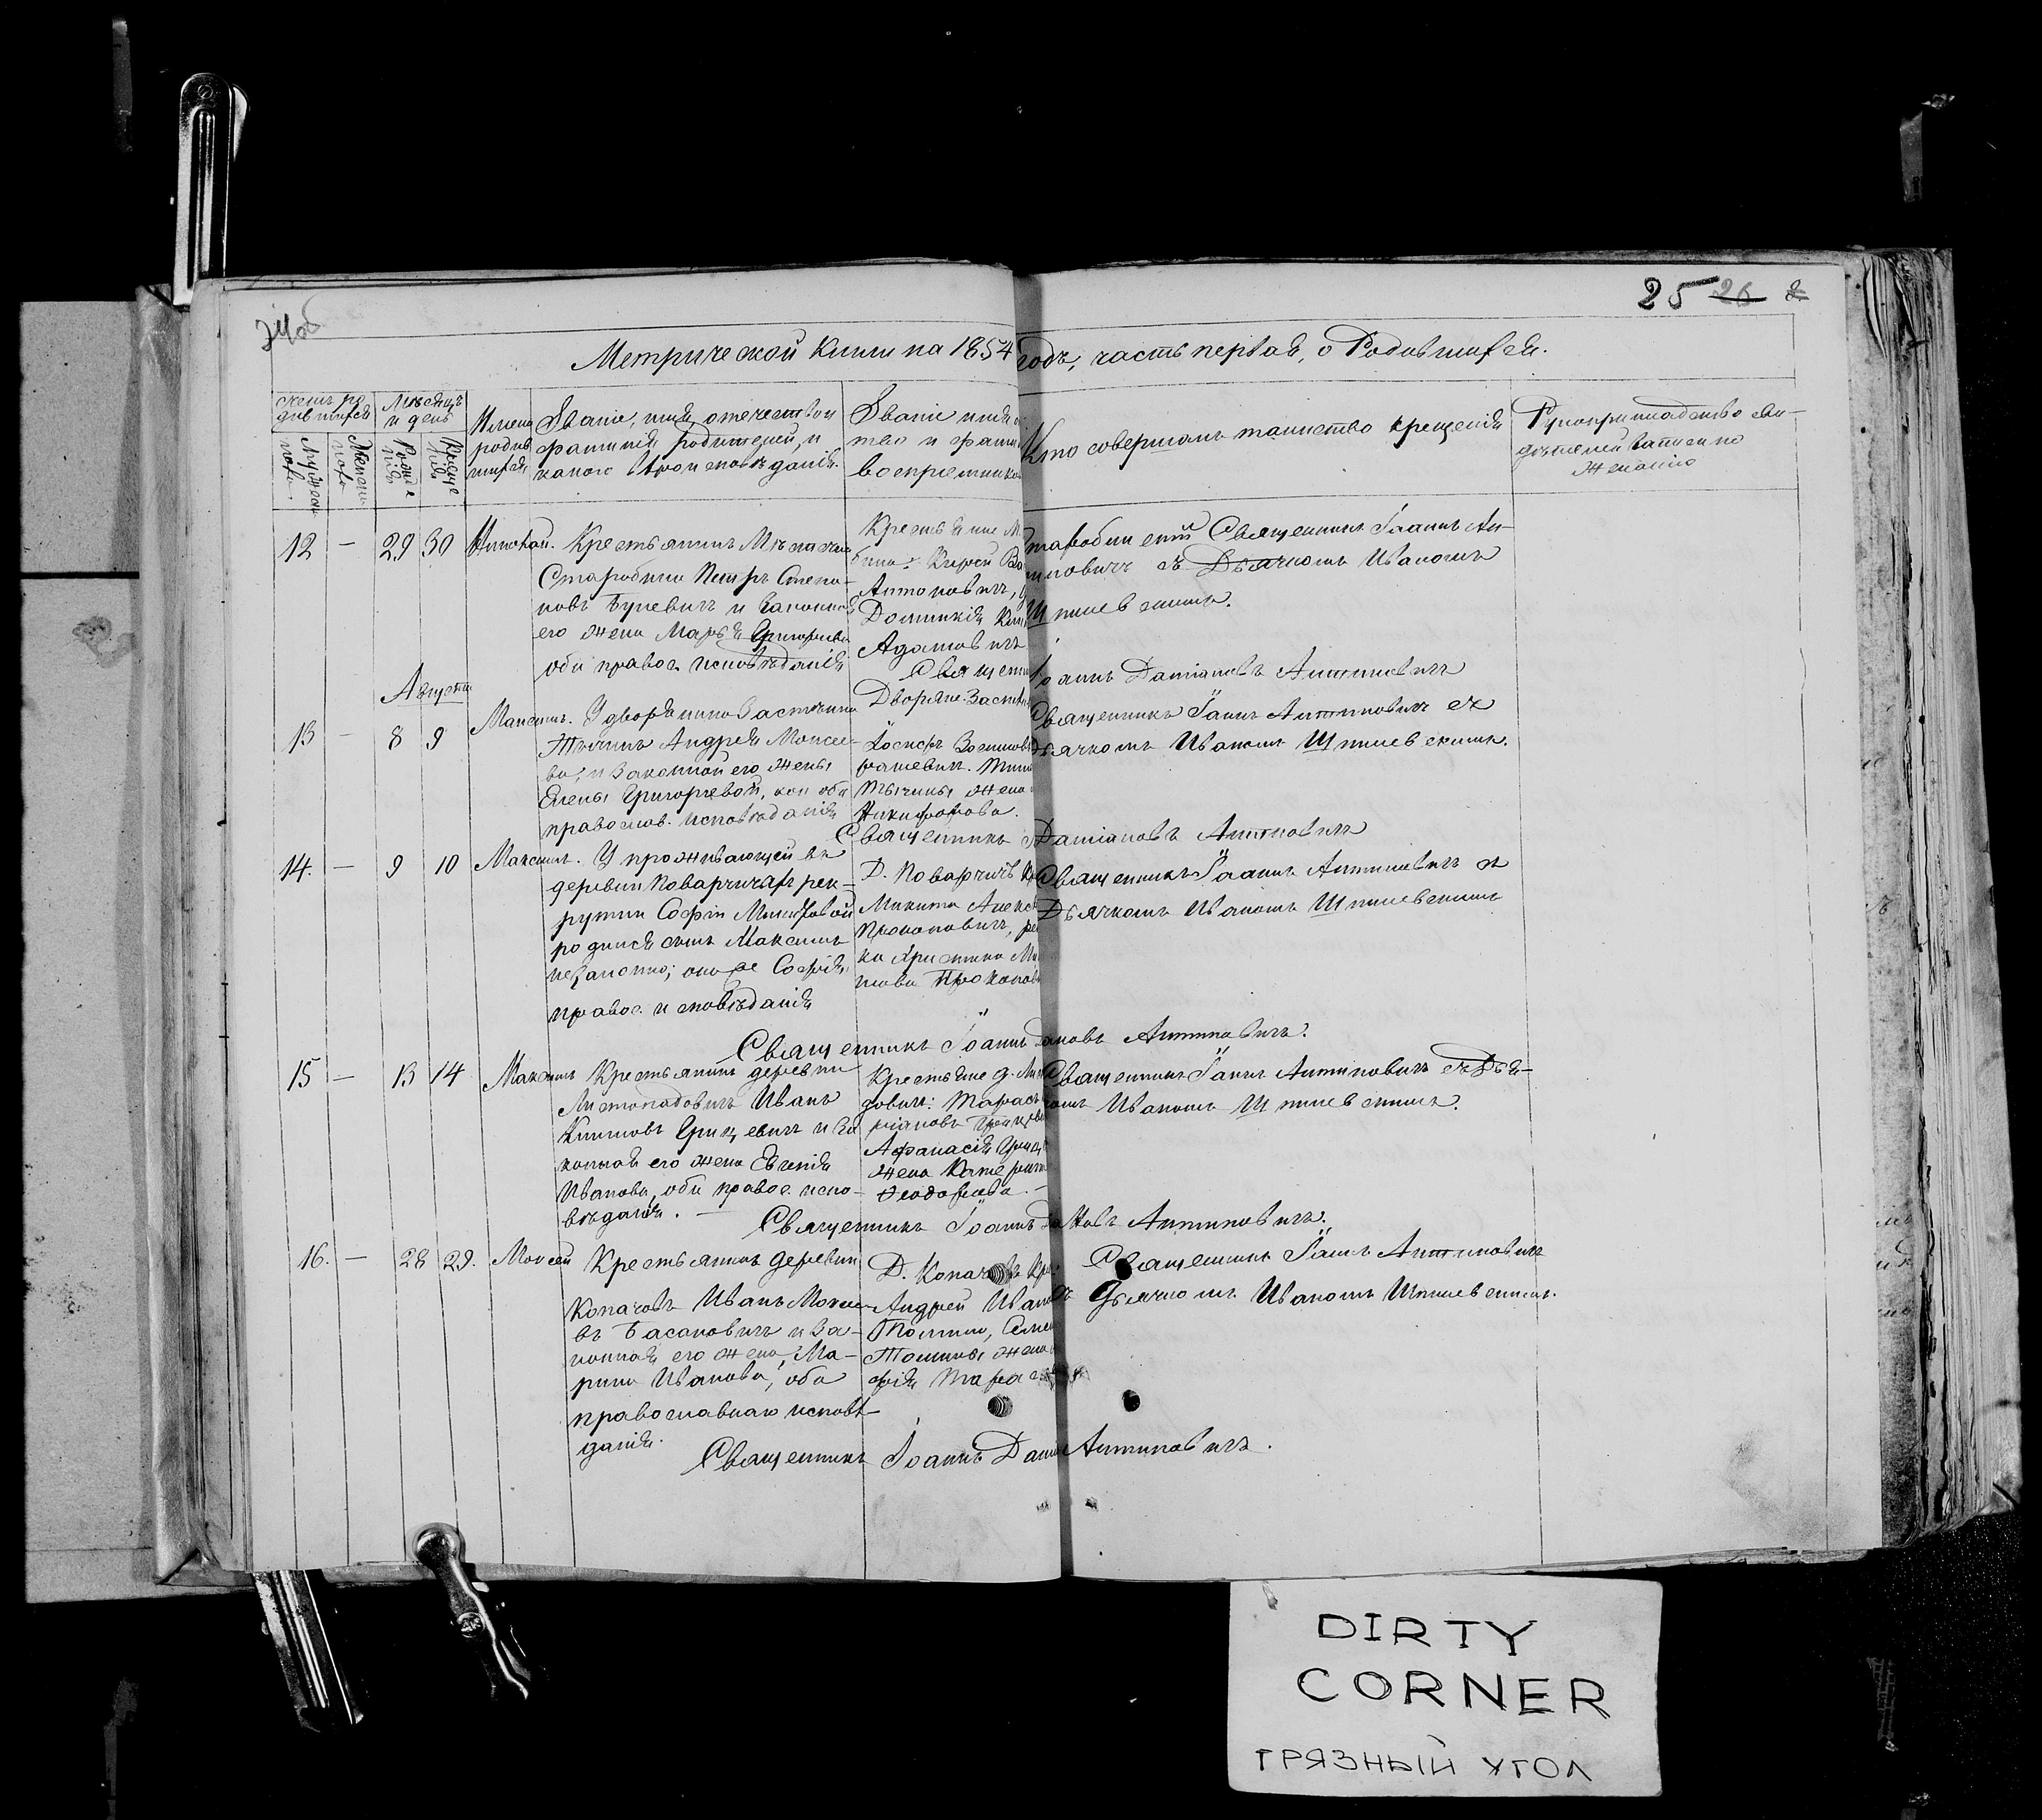 24об
25 26
Метрической Книги на 1854 годъ, часть первая, о Родившихся.
счетъ ро
дившихся
Мѣсяцъ
и день
Имена
родив
шихся
Мужеск.
пола
Женск.
пола
Рожде
нія
Креще
нія
Званіе, имя, отечество и
фамилія родителей, и
какого вѣроисповѣданія.
Званіе имя
фами
воспріемнико
Кто совершалъ таинство крещенія
Рукоприкладство сви-
дѣтелей записи по
желанію
12 — 29 30
Крестьянинъ Мѣстечка
Старобина Петръ Степа-
новъ Буневичъ и законная
его жена Марья Григорьева
оби правос. исповѣданія
Крестьяне М
Антоновичъ,
Адамовичъ
таробинскій Священникъ Іоаннъ Ан-
типовичъ съ Дьячкомъ Иваномъ
Шпилевскимъ.
Священн
Іоаннъ Даміановъ Антиповичъ
Августъ
13 — 8 9
Максимъ. У дворянина Застѣнка
Тычинъ Андрея Моисее-
ва, и законной его жены
Елены Григорьевой, кои оби
православ. исповѣданія
Дворяне Застѣн
Іосифъ
Тычины жена
Никифорова.
Священникъ Іоаннъ Антиповичъ съ
дьячкомъ Иваномъ Шпилевскимъ.
Священникъ Даміановъ Антиповичъ
14. — 9 10
Максимъ. У проживающей въ
деревни Поварчичахъ рек-
рутки Софіи Микитовой
родился сынъ Максимъ
незаконно; она же Софія
правос. исповѣданія
Д. Поварчичъ
Микита Алекс
Прокоповичъ,
ка Христина Ми
това Прокопов
Священникъ Іоаннъ Антиповичъ съ
Дьячкомъ Иваномъ Шпилевскимъ
Священникъ Іоаннъ Антиповичъ.
15 — 13 14
Максимъ Крестьянинъ деревни
Листопадовичъ Иванъ
Климовъ Грицевичъ и за
конная его жена Евгенія
Иванова, оби правос. испо-
вѣданія. —
Крестьяне д. Лист
довичъ: Тарасъ
Афанасія Гриц
жена Катерина
Ѳеодорова. —
Священникъ Іоаннъ Антиповичъ съ Дья-
комъ Иваномъ Шпилевскимъ.
Священникъ Іоаннъ Антиповичъ.
16. — 28 29.
Моисей Крестьянинъ деревни
Копачовъ Иванъ Моисее-
въ Басановичъ и за-
конная его жена, Ма-
рина Иванова, оба
православнаго исповѣ-
данія.
Д. Копачовъ Кре
Андрей Иван
жена
фія Тарас
Священникъ Іоаннъ Антиповичъ
съ дьячкомъ Иваномъ Шпилевскимъ.
Священникъ Іоаннъ Дамі Антиповичъ.
DIRTY
CORNER
ГРЯЗНЫЙ УГОЛ